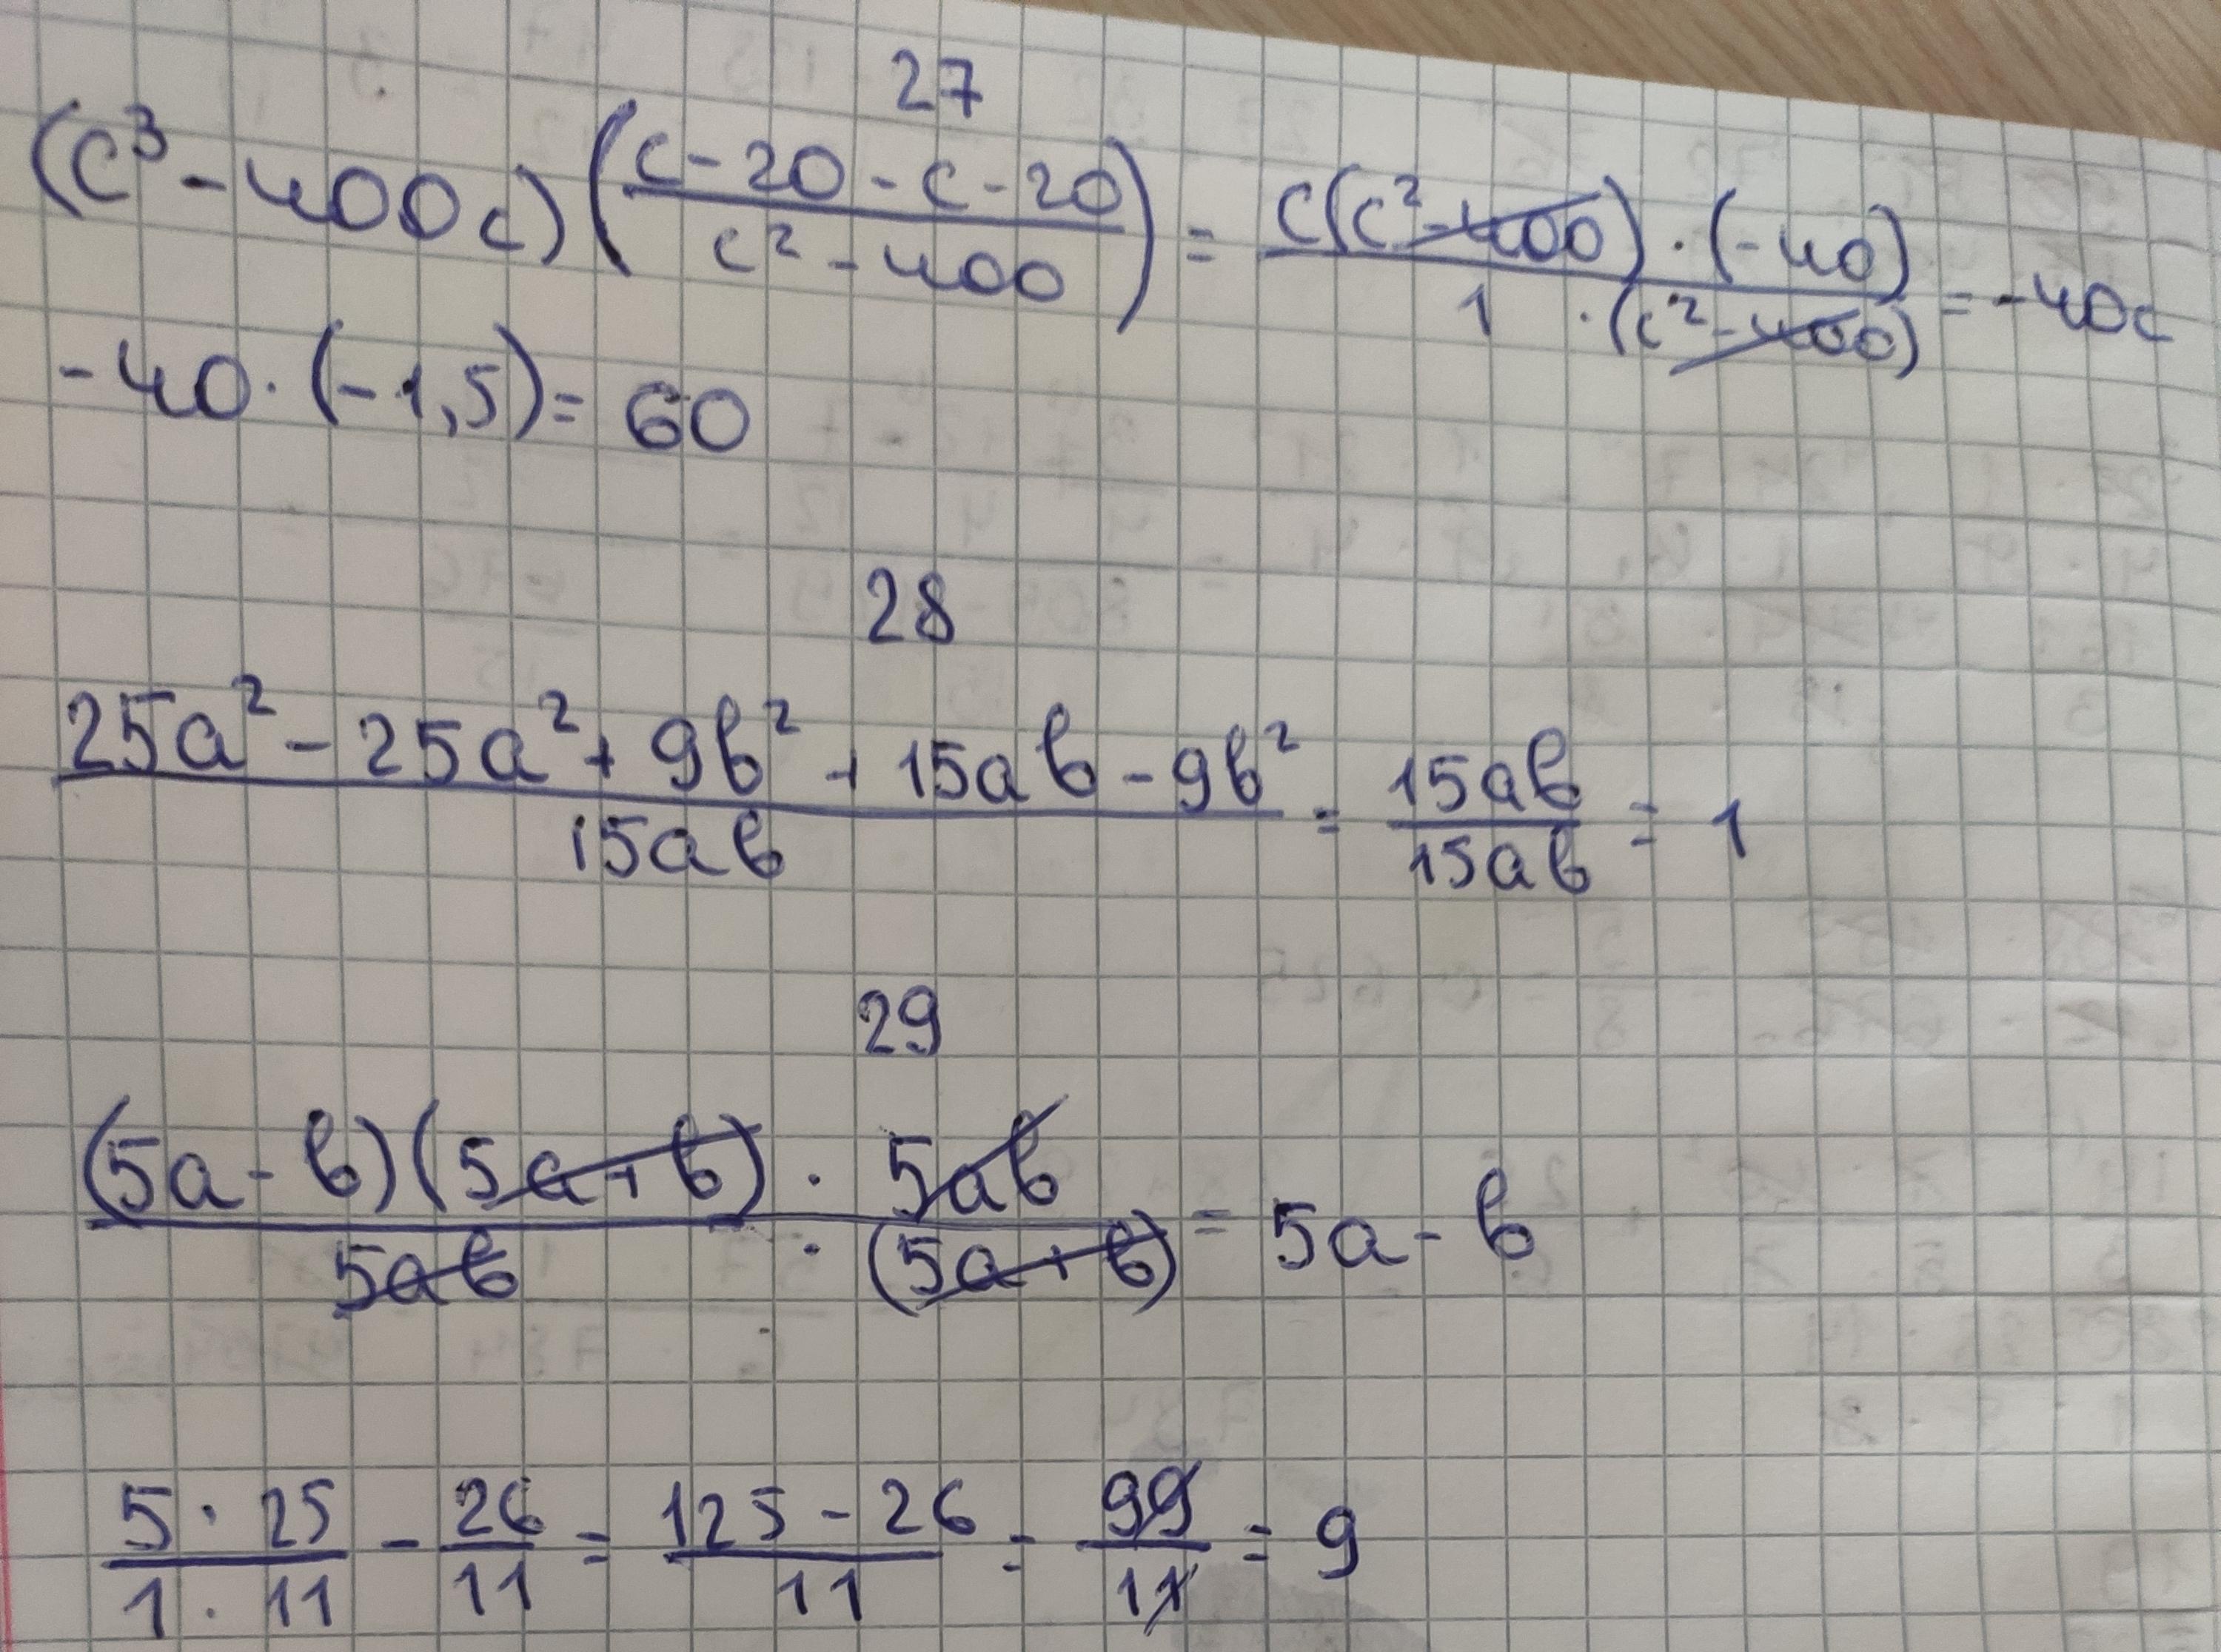 27
(c³ - 400c)((c - 20 - c - 20)/(c² - 400)) = (c(c² - 400) · (-40))/(1 · (c² - 400)) = -40c
-40 · (-1,5) = 60
28
(25a² - 25a² + 9b² + 15ab - 9b²)/(15ab) = 15ab/15ab = 1
29
((5a - b)(5a + b) · 5ab)/(5ab · (5a + b)) = 5a - b
(5 · 25)/(1 · 11) - 26/11 = (125 - 26)/11 = 99/11 = 9